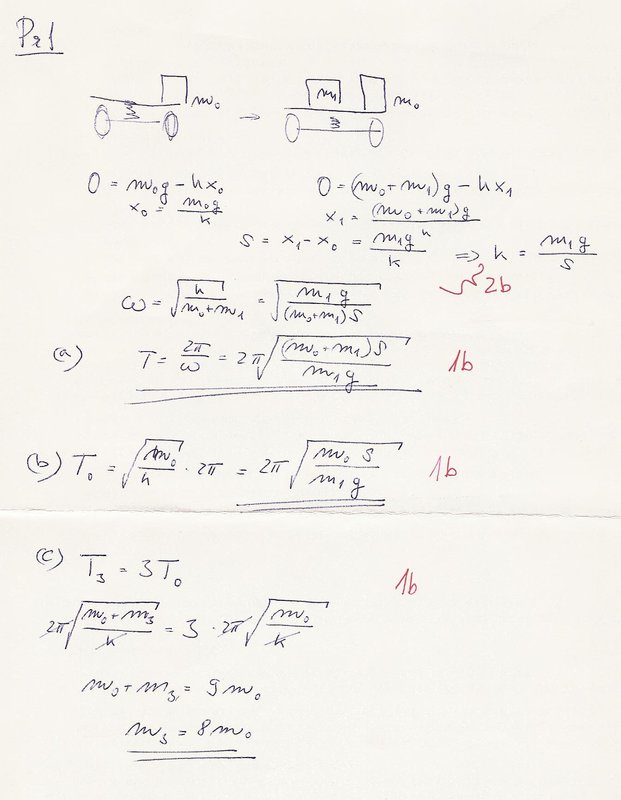 Př 1
m₀ → m₁ m₀
0 = m₀g - kx₀ 0 = (m₀+m₁)g - kx₁
x₀ = m₀g/k x₁ = (m₀+m₁)g/k
s = x₁ - x₀ = m₁g/k ⇒ k = m₁g/s
2b
ω = √(k/(m₀+m₁)) = √(m₁g/((m₀+m₁)s))
(a) T = 2π/ω = 2π√((m₀+m₁)s/(m₁g)) 1b
(b) T₀ = √(m₀/k) · 2π = 2π√(m₀s/(m₁g)) 1b
(c) T₃ = 3T₀ 1b
2π√((m₀+m₃)/k) = 3 · 2π√(m₀/k)
m₀+m₃ = 9m₀
m₃ = 8m₀